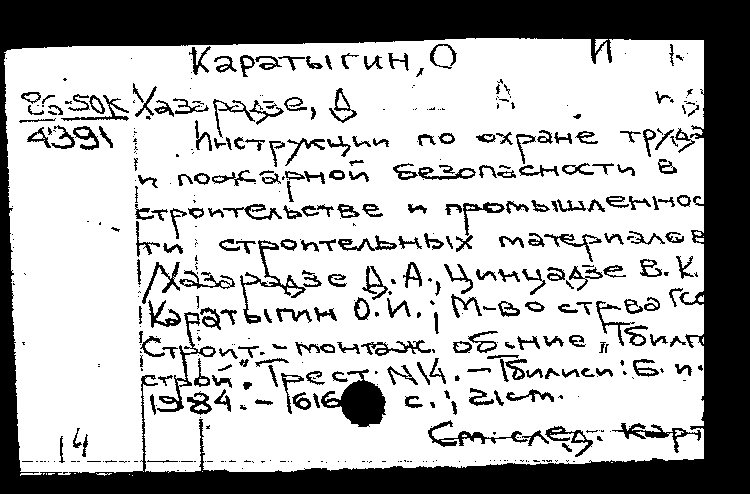 Каратыгин, О И
86-50К Хазарадзе, Д А
4391 Инструкции по охране труда
и пожарной безопасности в
строительстве и промышленнос
ти строительных материалов
/Хазарадзе Д.А., Цинцадзе В.К.
Каратыгин О.И.; М-во стр-ва ГСС
Строит.-монтаж. об-ние „Тбилг
строй". Трест N14. – Тбилиси: Б.и.
1984. – 616 с.; 21см.
14 См. след. карт